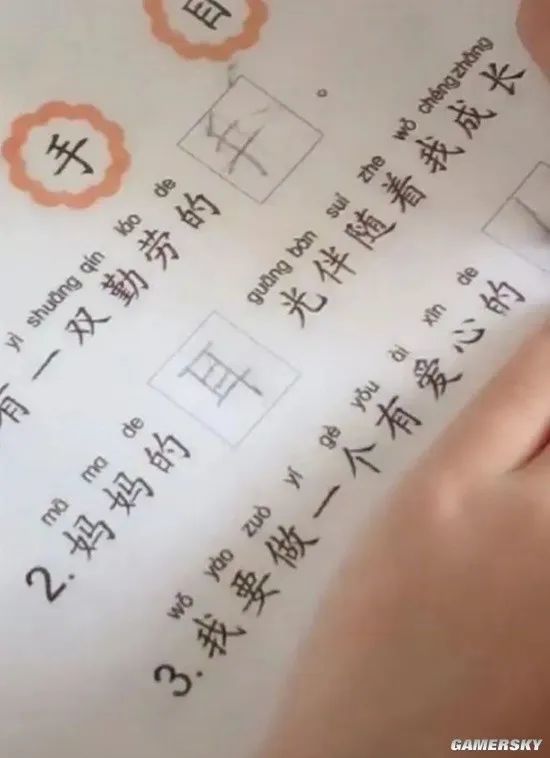 目
手
yì shuāng qín láo de
有一双勤劳的手。
mā ma de guāng bàn suí zhe wǒ chéngzhǎng
2. 妈妈的耳光伴随着我成长
wǒ yào zuò yí gè yǒu ài xīn de
3. 我要做一个有爱心的
GAMERSKY